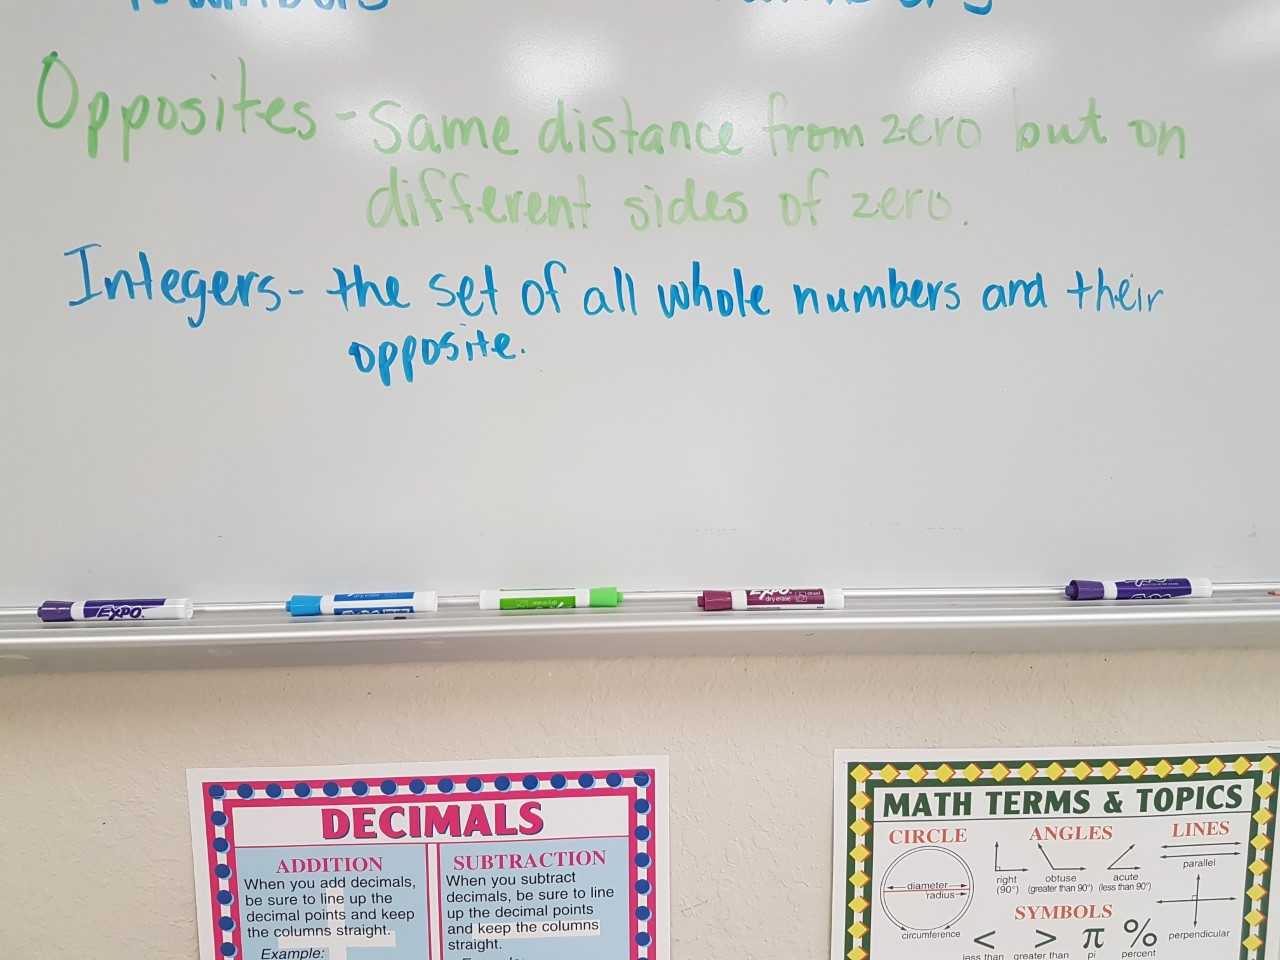 Opposites - Same distance from zero but on
different sides of zero.
Integers - the set of all whole numbers and their
opposite.
EXPO
dry erase
EXPO
EXPO
dry erase
EXPO
DECIMALS
ADDITION
When you add decimals,
be sure to line up the
decimal points and keep
the columns straight.
Example:
SUBTRACTION
When you subtract
decimals, be sure to line
up the decimal points
and keep the columns
straight.
MATH TERMS & TOPICS
CIRCLE
diameter
radius
circumference
ANGLES
right
(90°)
obtuse
(greater than 90°)
acute
(less than 90°)
LINES
parallel
perpendicular
SYMBOLS
< > π %
less than greater than pi percent